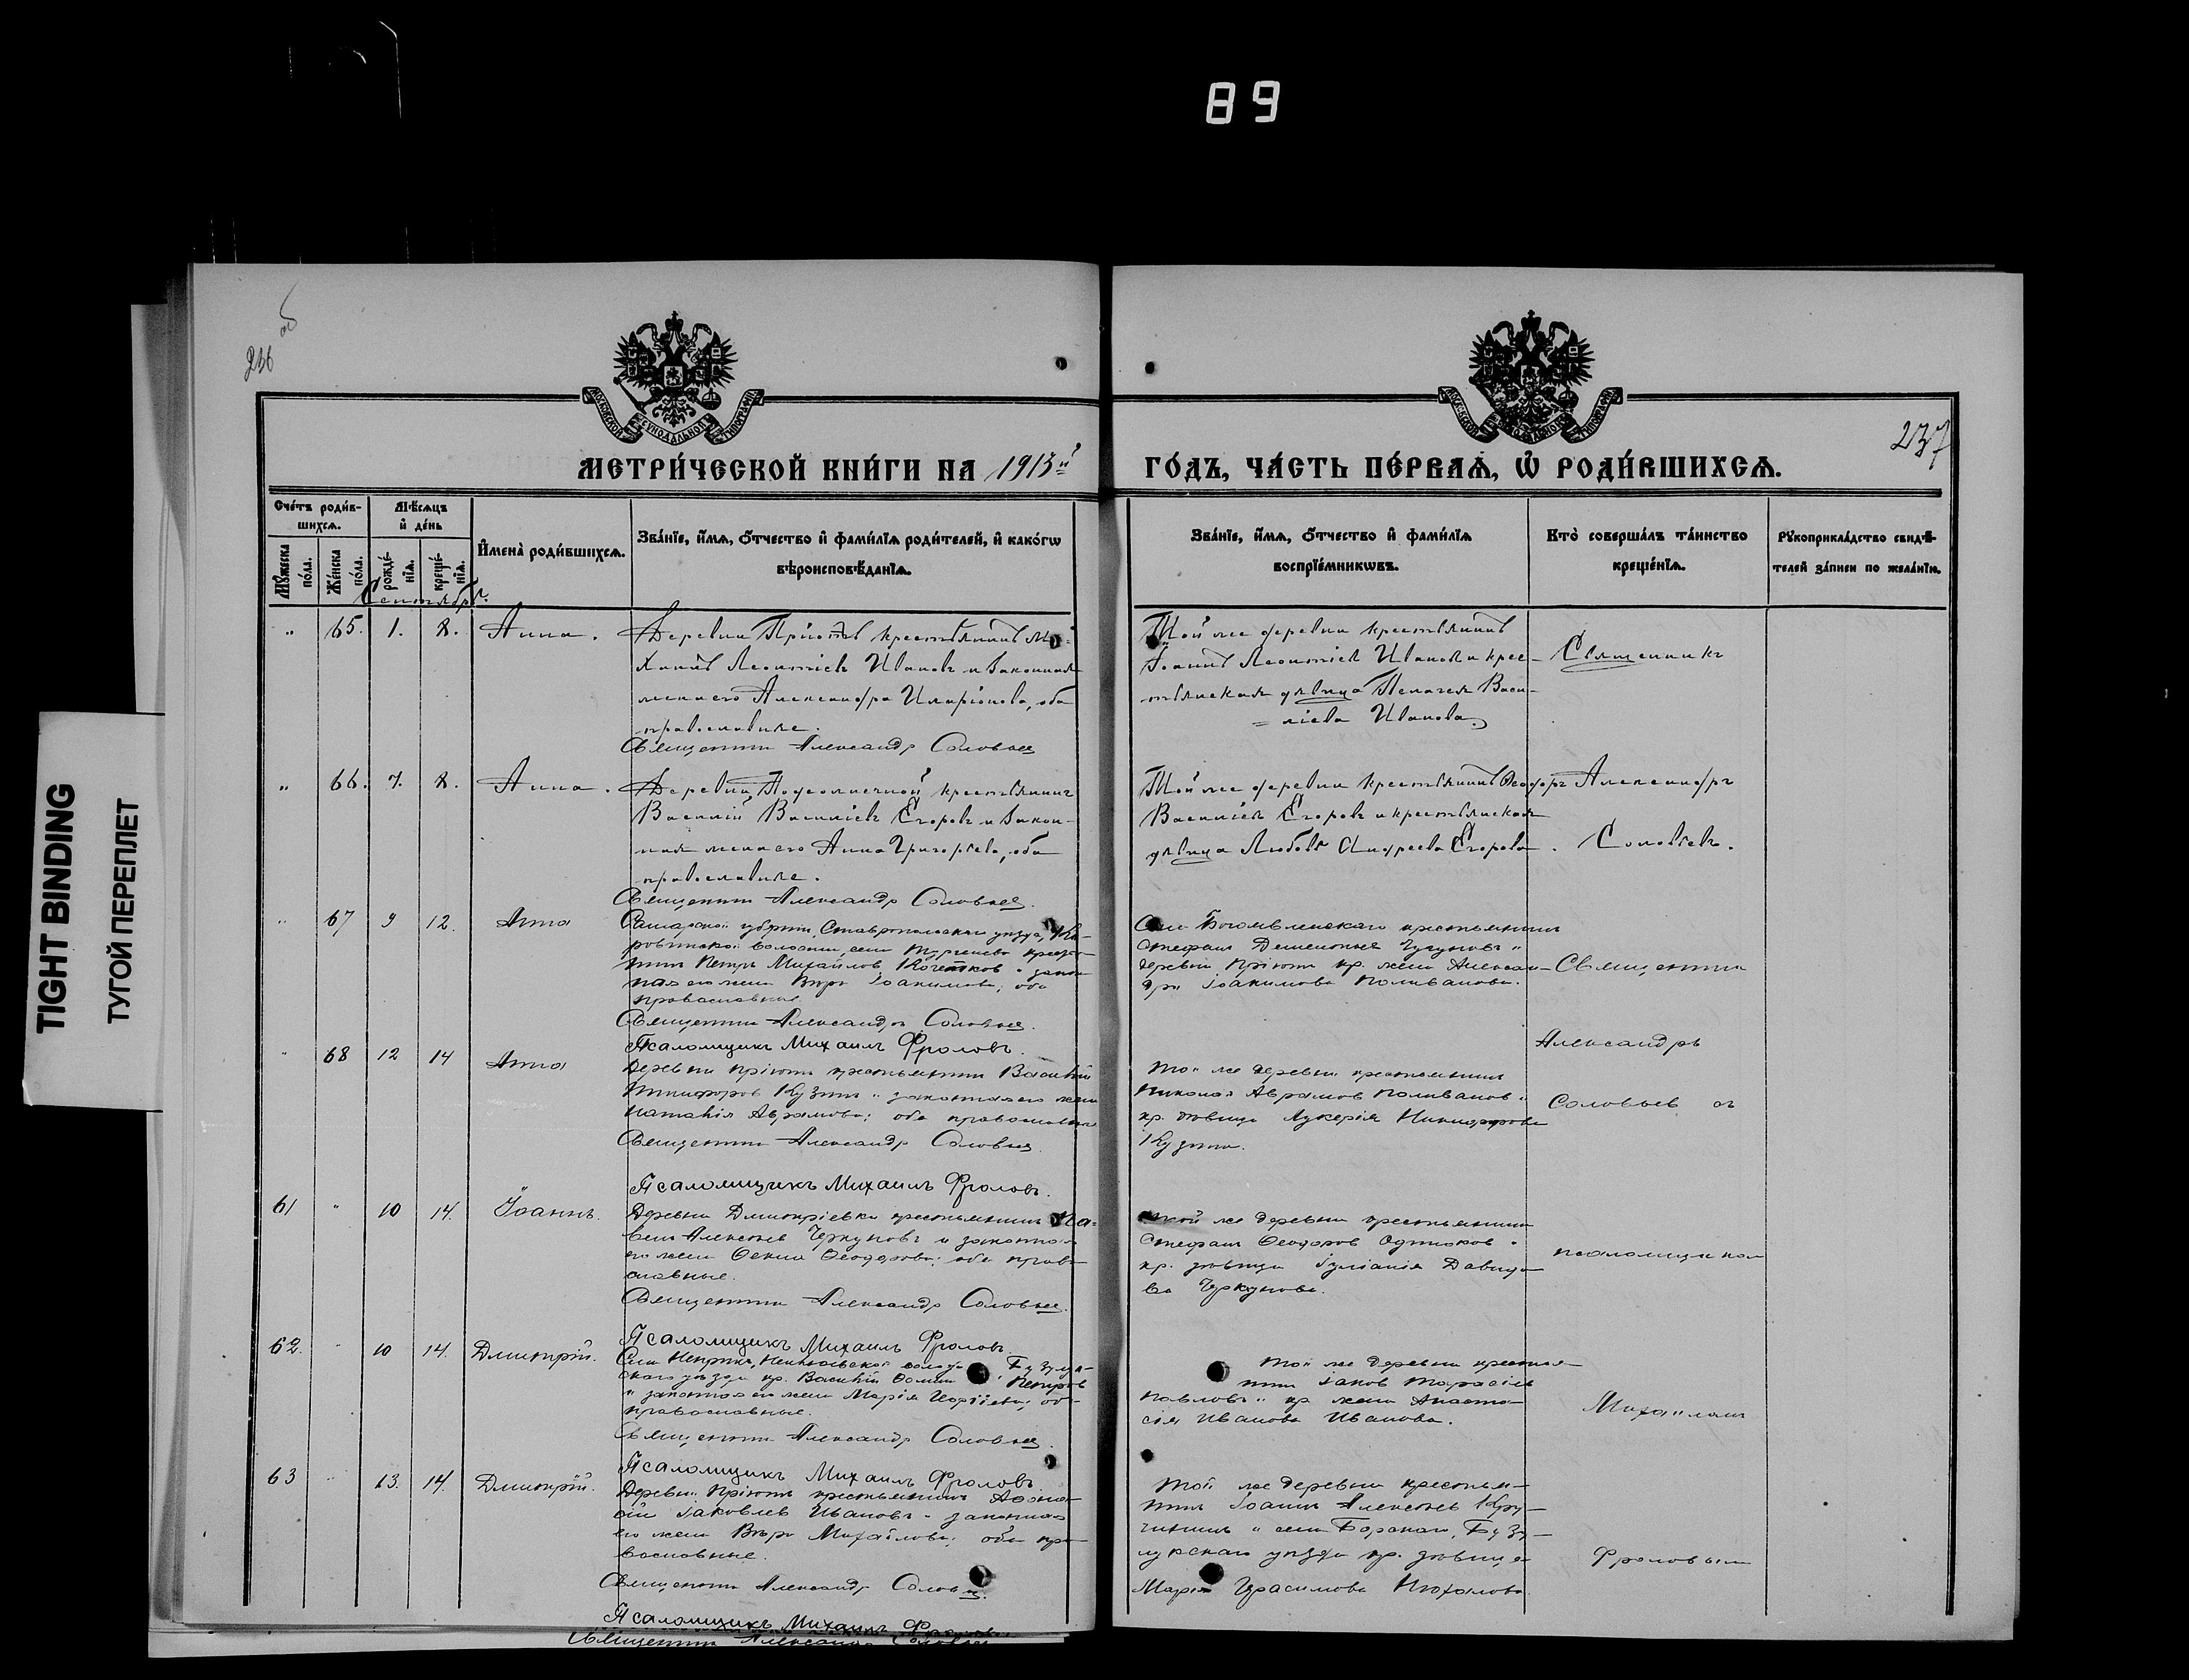 89
TIGHT BINDING
ТУГОЙ ПЕРЕПЛЕТ
236 об
237
МЕТРИ́ЧЕСКОЙ КНИ́ГИ НА 1913й ГО́ДЪ, ЧА́СТЬ ПЕ́РВАѦ, Ѽ РОДИ́ВШИХСѦ.
Сче́тъ роди́в-
шихсѧ.
Мѣ́сѧцъ
и҆ де́нь
Мꙋ́жеска по́ла.
Же́нска по́ла.
рожде́-нїѧ.
креще́-нїѧ.
И҆мена̀ роди́вшихсѧ.
Зва́нїе, и҆́мѧ, ѻ҆́тчество и҆ фами́лїѧ роди́телей, и҆ како́гѡ
вѣроисповѣ́данїѧ.
Зва́нїе, и҆́мѧ, ѻ҆́тчество и҆ фами́лїѧ
воспрїе́мникѡвъ.
Кто̀ соверша́лъ та́инство
креще́нїѧ.
Рꙋкоприкла́дство свидѣ́-
телей за́писи по жела́нїю.
Сентябрь.
" 65. 1. 8. Анна.
Деревни Пріютъ крестьянинъ Ми-
хаилъ Леонтіевъ Ивановъ и законная
жена его Александра Иларіонова, оба
православные.
Священникъ Александръ Соловьев
Той же деревни крестьянинъ
Іоаннъ Леонтіевъ Ивановъ и крес-
тьянская дѣвица Пелагея Васи-
=лiева Иванова.
Священникъ
" 66. 7. 8. Анна.
Деревни Подсолнечной крестьянинъ
Василій Василіевъ Егоровъ и закон-
ная жена его Анна Григорьева, оба
православные.
Священник Александр Соловьев.
Той же деревни крестьянинъ Ѳеодоръ
Василіевъ Егоровъ и крестьянская
дѣвица Любовь Андреева Егорова.
Александръ
Соловьевъ.
" 67 9 12. Анна
Самарской губерніи, Ставропольскаго уѣзда,
волости, села Тургенево крестья-
нин Петръ Михайлов Кочетков и закон-
ная его жена Вѣра Іоакимова, оба
православные
Священник Александръ Соловьев.
Псаломщикъ Михаилъ Фроловъ.
Села Богоявленскаго крестьянинъ
Стефанъ Чугуновъ и
деревни Пріютъ кр. жена Алексан-
дра Іоакимова Поливанова.
Священник
Александръ
" 68 12 14 Анна
Деревни Пріютъ крестьянин Василій
Никифоров Кузин и законная его жена
Наталія Аврамова; оба православные
Священник Александр Соловьев
Псаломщикъ Михаилъ Фроловъ.
Той же деревни крестьянинъ
Николай Аврамов Поливанов и
кр. дѣвица Лукерія Никифорова
Кузина.
Соловьев съ
61 " 10 14. Іоаннъ.
Деревни Дмитріевки крестьянинъ Па-
велъ Алексѣев Чуркуновъ и законная
его жена Ѳеодорова; оба право-
славные.
Священник Александр Соловьев.
Псаломщикъ Михаилъ Фроловъ.
Той же деревни крестьянинъ
Стефанъ Ѳеодоров Одиноков и
кр. дѣвица Іуліанія Давидо-
ва Чуркунова.
псаломщиком
62. " 10 14. Дмитрій.
Села Бузулук-
скаго уѣзда кр. Василій Петров
и законная его жена Марія; оба
православные.
Священник Александр Соловьев.
Псаломщикъ Михаилъ Фроловъ
Той же деревни крестья-
нин Іаков Тарасіев
Павловъ и кр. жена Анаста-
сія Иванова Иванова.
Михаилом
63 " 13. 14. Дмитрій.
Деревни Пріютъ крестьянинъ Аѳана-
сій Іаковлев Ивановъ и законная
его жена Вѣра Михайлова; оба пра-
вославные.
Священник Александр Соловьев.
Псаломщикъ Михаилъ Фролов
Священник Александр Соловьев
Той же деревни крестьян-
инъ Іоаннъ Алексѣев Кру-
и села Борскаго, Бузу-
лукскаго уѣзда кр. дѣвица
Марія Герасимова
Фроловым